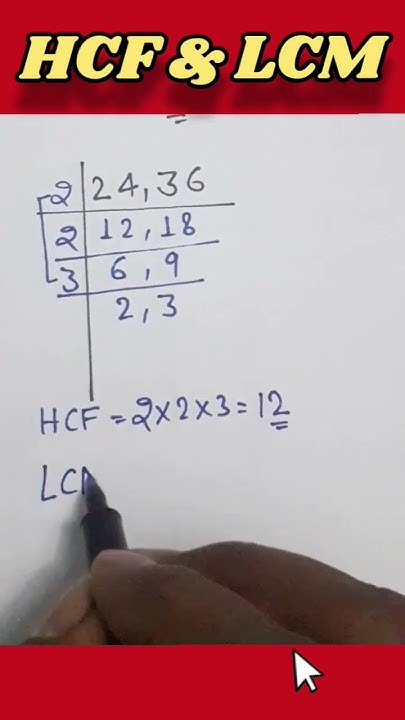 HCF & LCM
2 24, 36
2 12, 18
3 6, 9
2, 3
HCF = 2×2×3 = 12
LC